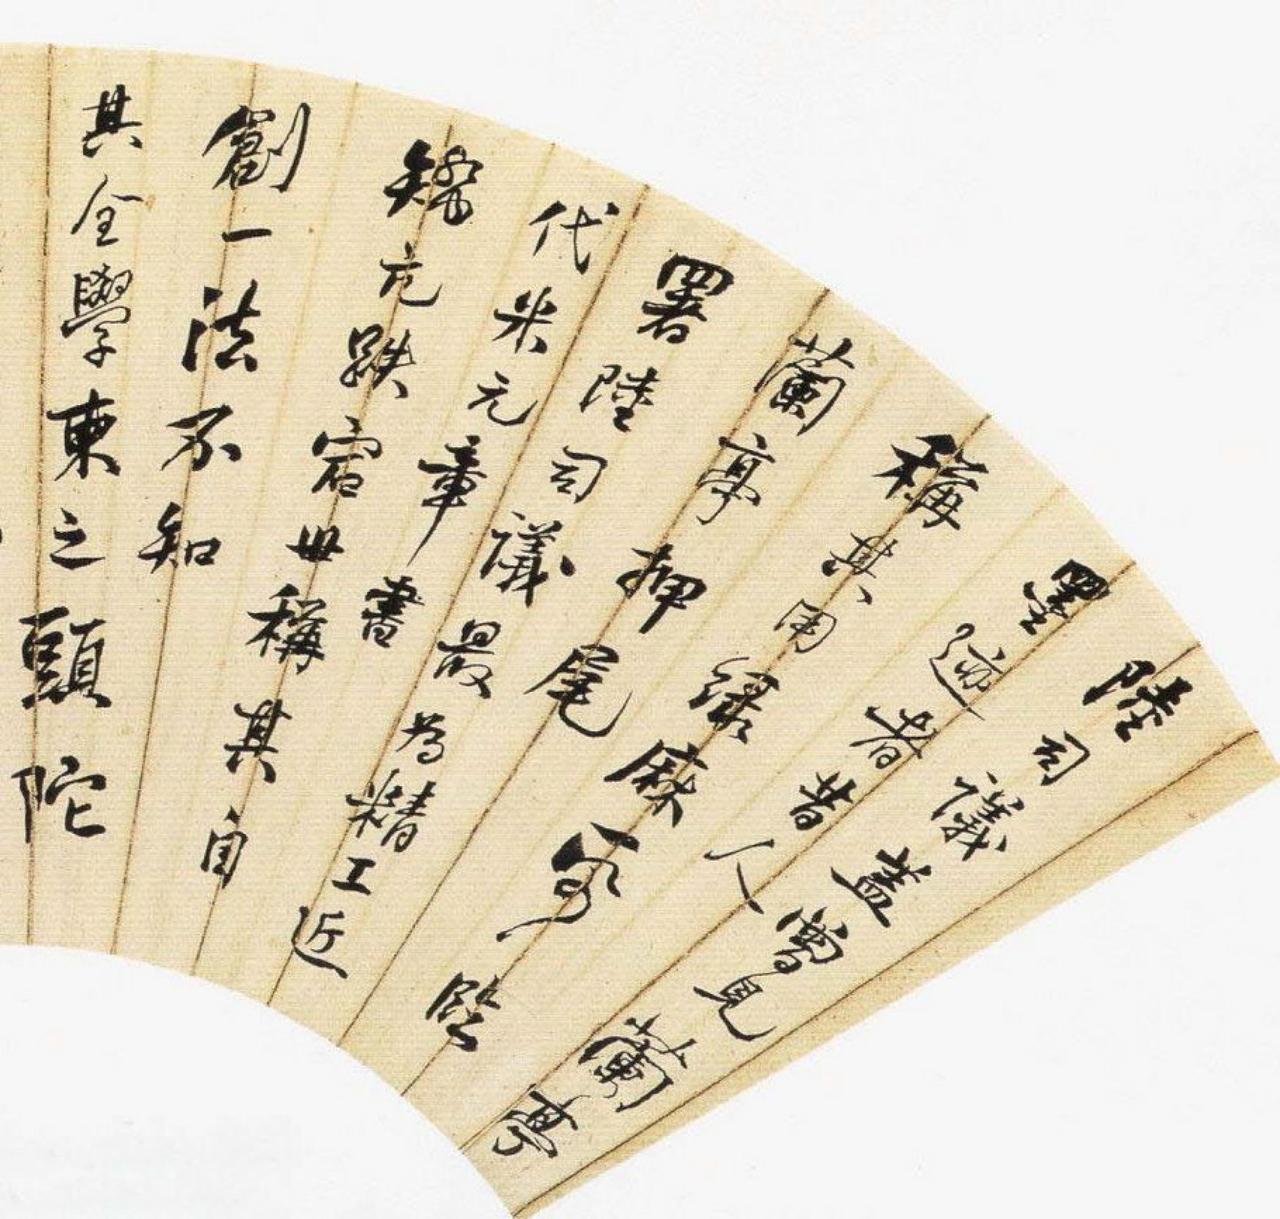 陸司議蓋曾見蘭亭
墨迹者昔人
稱其用綠麻臨
蘭亭押尾
署陸司議最為精工近
代米元章書
矯亢跌宕世稱其自
創一法不知
其全學柬之頭陀